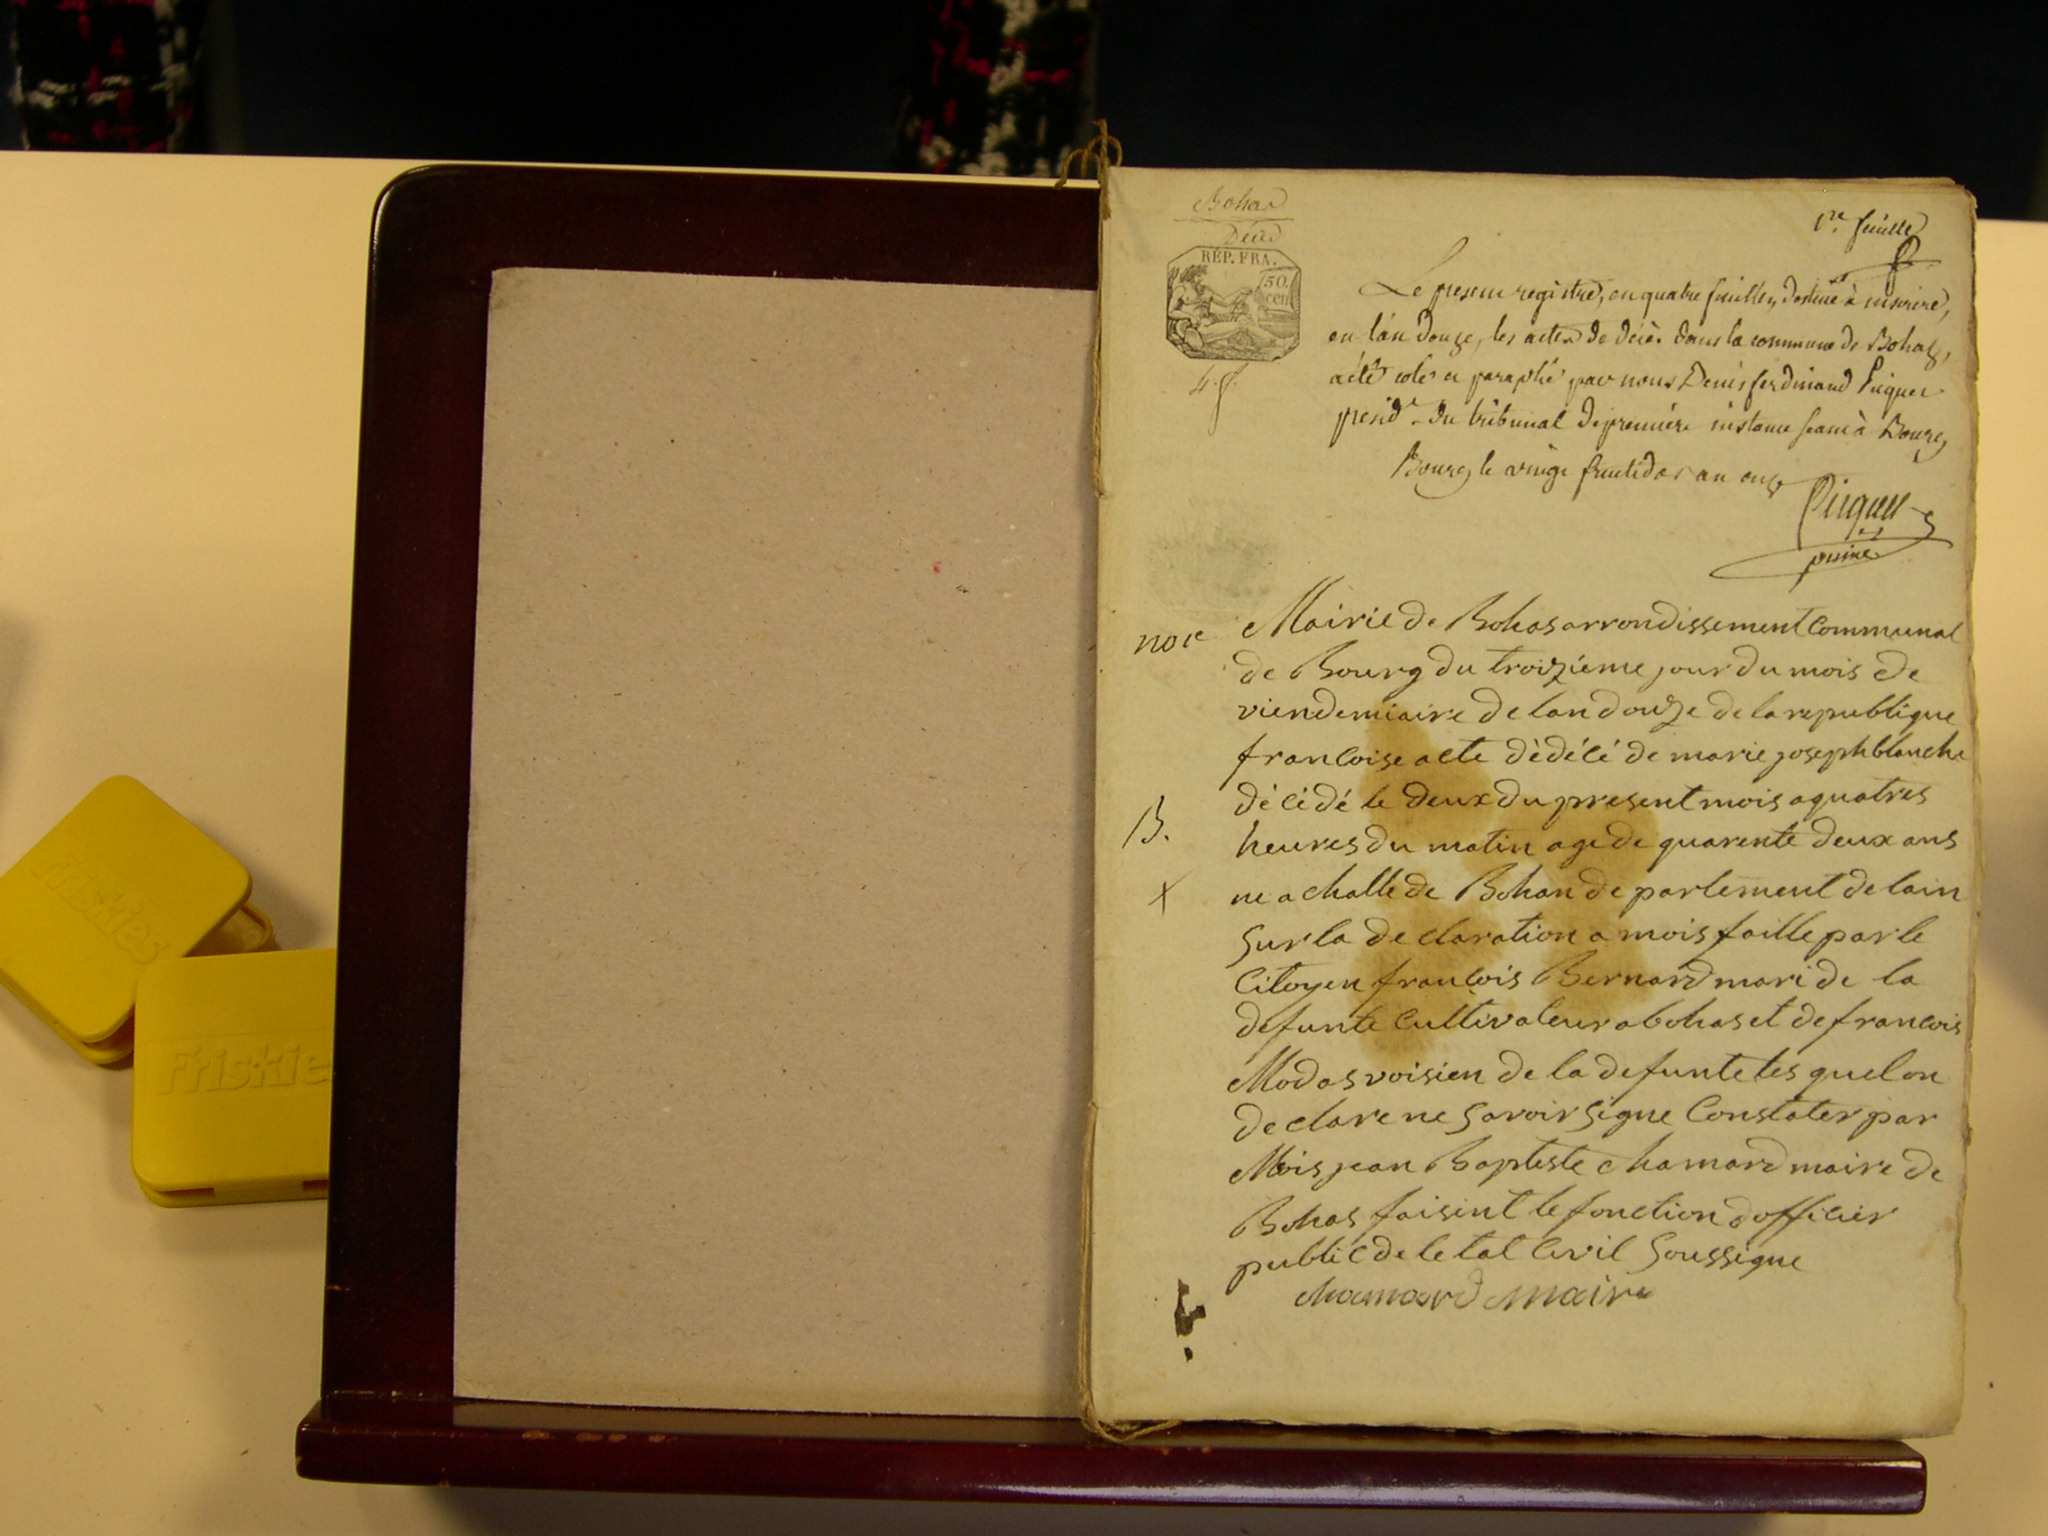 Bohas
Décès
1re feuille
RÉP. FRA.
50.
cen
4. f.
Le present registre, en quatre feuilles, destiné à inscrire,
en l'an douze, les actes de décès dans la commune de Bohas,
a été coté et paraphé par nous Denis ferdinand Picquet
presidt. du tribunal de première instance seant à Bourg,
Bourg le vingt fructidor an onze
Picquet
no 1e
Mairie de Bohas arrondissement Communal
de Bourg du troizieme jour du mois de
viendemiaire de lan douze de la republique
francoise acte dèdécé de marie joseph blanche
B.
décédé le deux du present mois a quatres
heures du matin age de quarente deux ans
X
ne a challe de Bohan de partement de lain
Sur la de claration a mois faille par le
Citoyen francois Bernard mari de la
defunte Cultivateur a bohas et de francois
Modas voisien de la defunte les quel on
de clare ne Savoir Signe Constater par
Mois jean Baptiste chamard maire de
Bohas faisent le fonction dofficier
public de letat Civil Soussigne
chamard maire
Friskies
Friskie